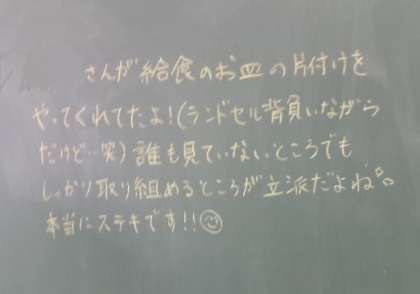 さんが給食のお皿の片付けを
やってくれてたよ！（ランドセル背負いながら
だけど…笑）誰も見ていないところでも
しっかり取り組めるところが立派だよね。
本当にステキです!!☺